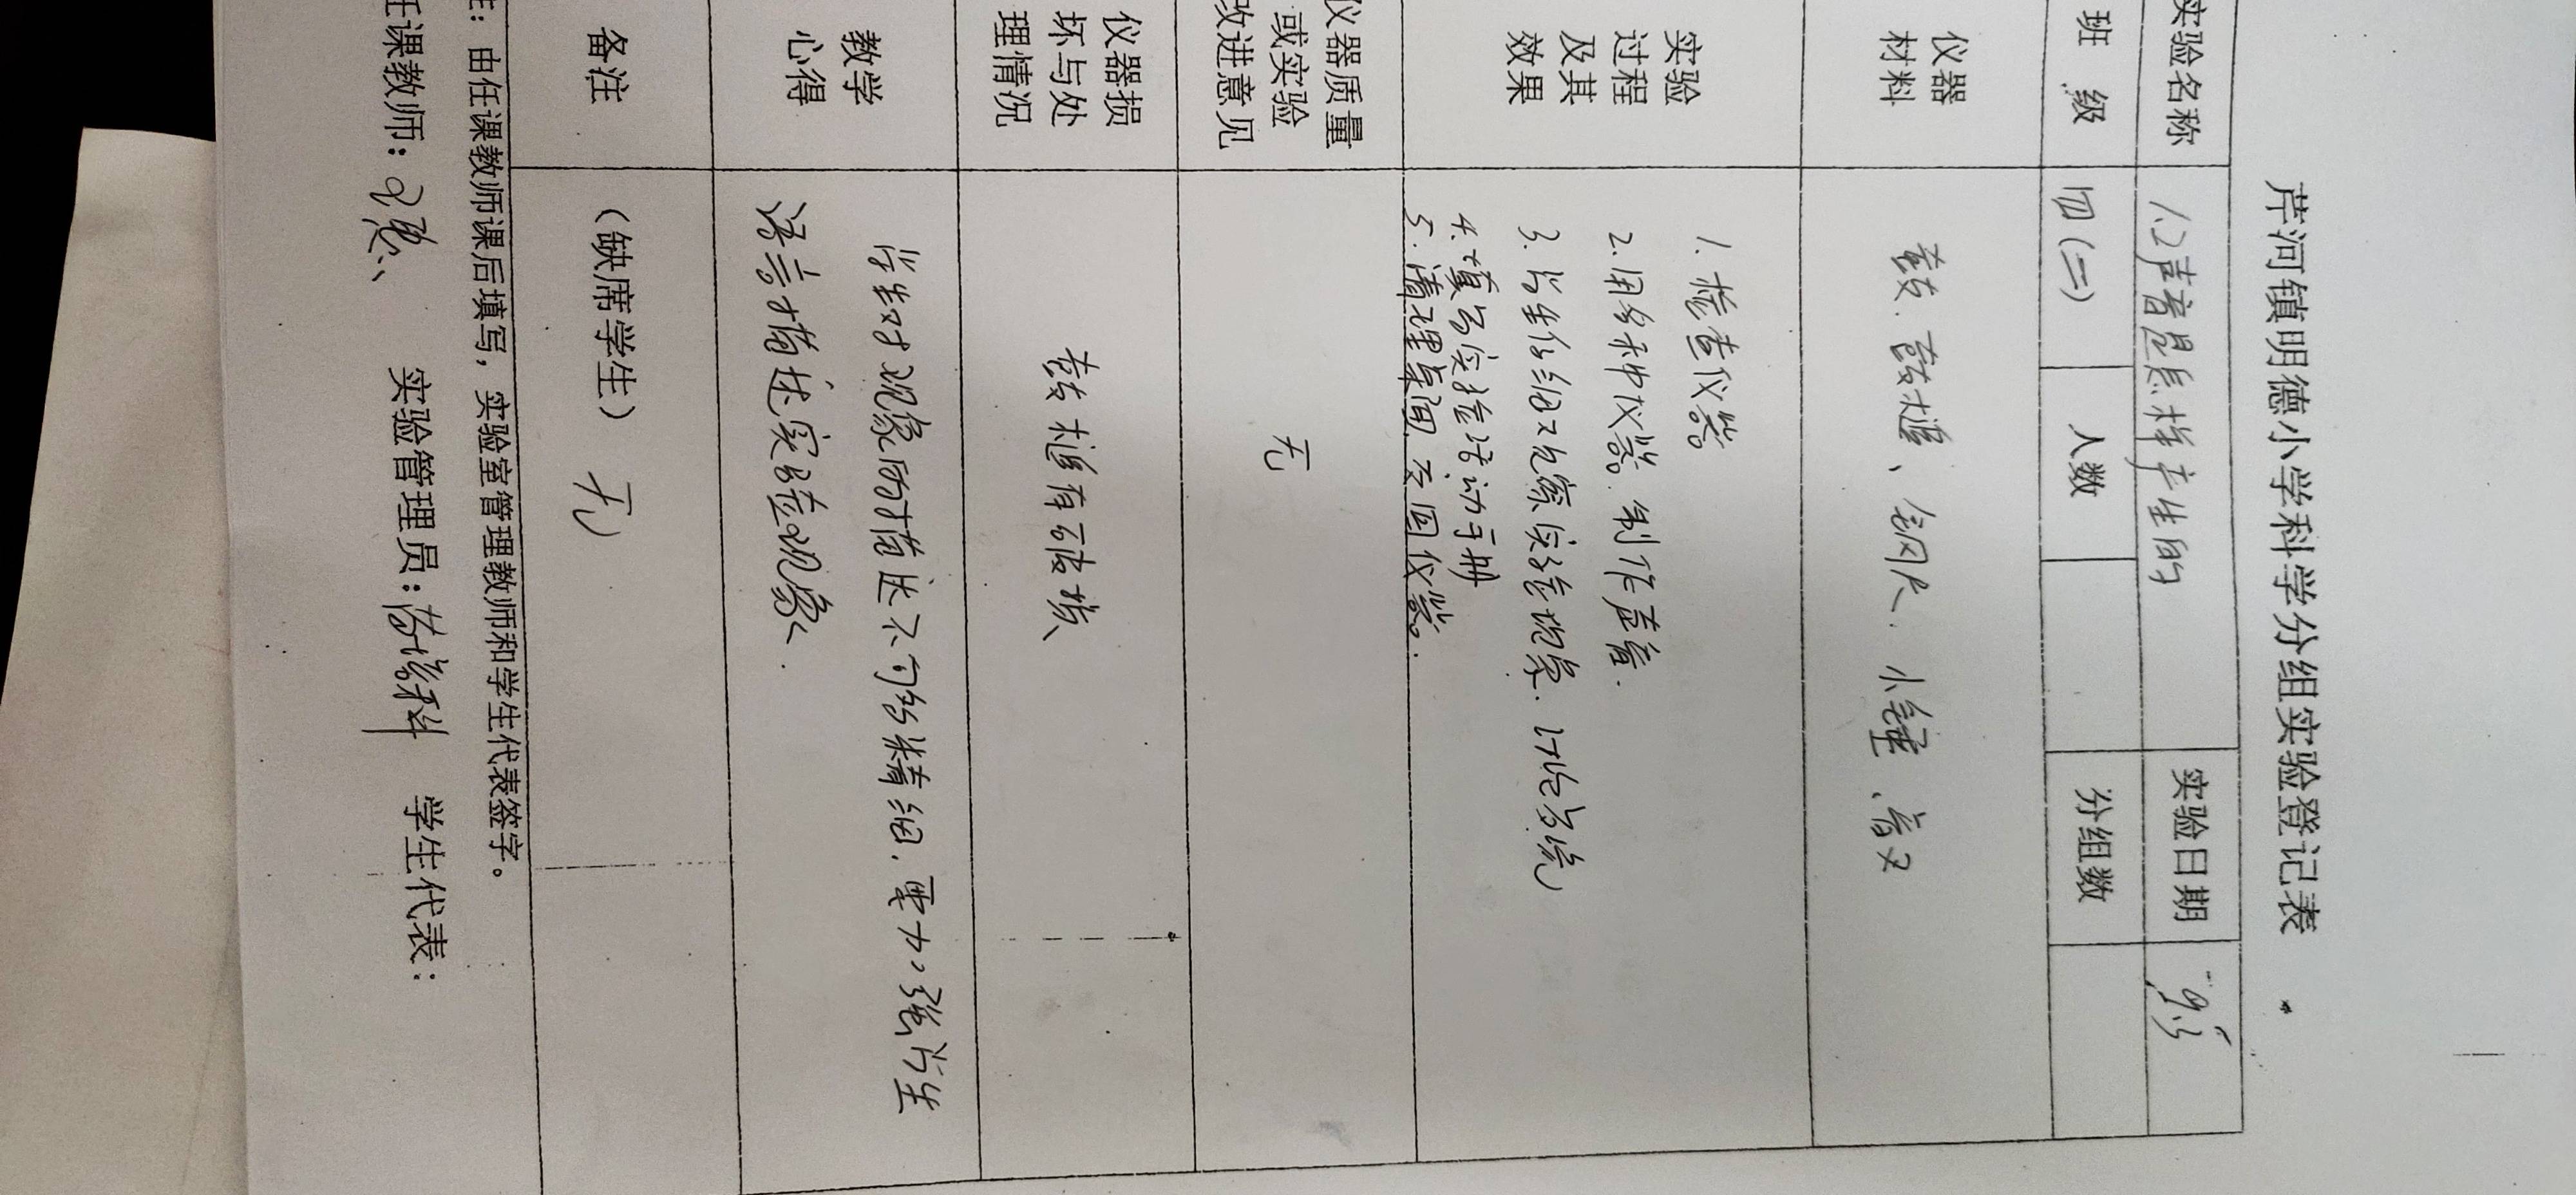 芹河镇明德小学科学分组实验登记表
实验名称 1.2声音是怎样产生的 实验日期 9.5
班 级 四(二) 人数 分组数
仪器
材料
鼓、鼓槌、钢尺、小锤、音叉
实验
过程
及其
效果
1.检查仪器
2.用多种仪器制作声音.
3.学生分组观察实验现象.讨论交流
4.填写实验活动手册
5.清理桌面.交回仪器.
仪器质量
或实验
改进意见
无
仪器损
坏与处
理情况
鼓槌有破损
教学
心得
学生对现象的描述不够精细.要加强学生
语言描述实验现象.
备注
(缺席学生) 无
注:由任课教师课后填写,实验室管理教师和学生代表签字。
任课教师: 实验管理员: 学生代表: